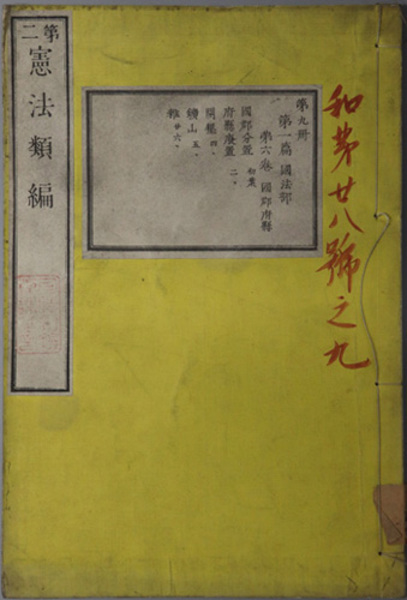 和第廿八號之九
第九冊
第一篇 國法部
第六卷 國郡府縣
國郡分置 初葉
府縣廢置 二、
開墾 四、
鑛山 五、
雜 廿六、
第二
憲法類編